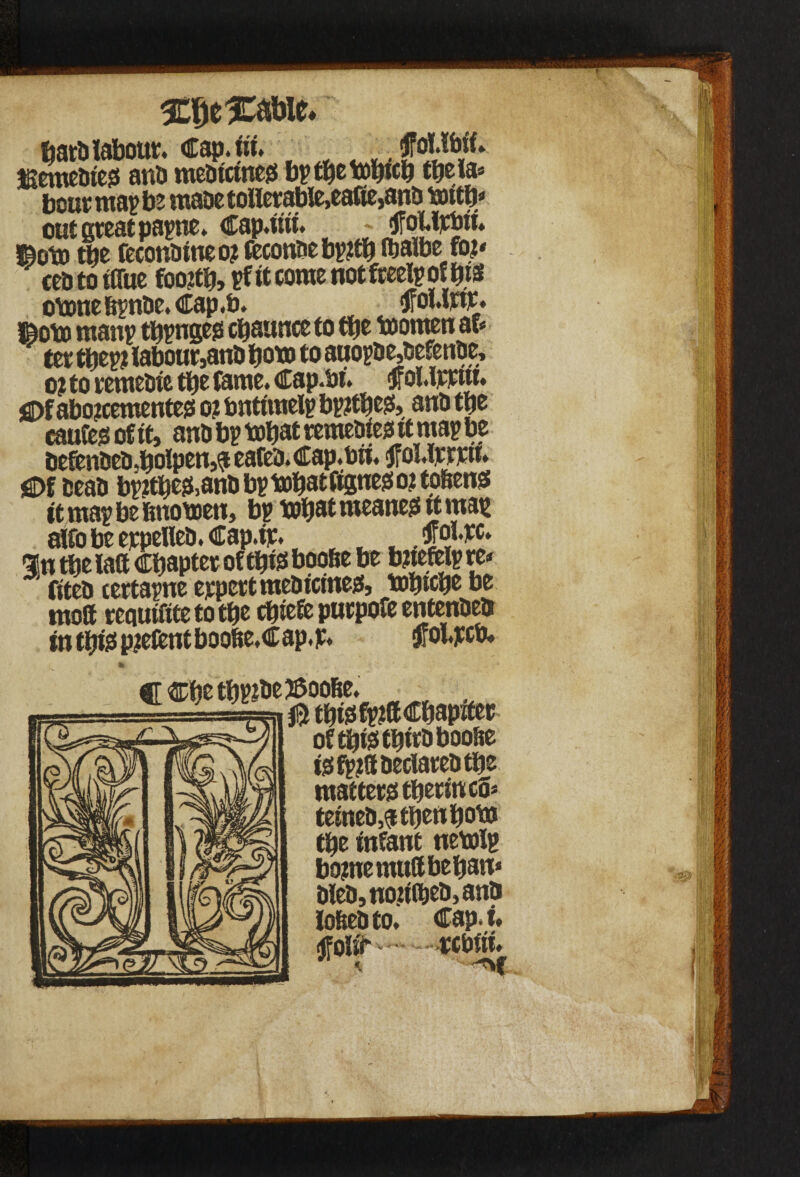 The Table.
hard labour. Cap. iii. Fol.lvii.
Remedies and medicines by the which the la=
bour may be made tollerable, easie, and with=
out great payne. Cap.iiii. Fol.lxvii.
How the secondine or seconde byrth shalbe for=
ced to issue foorth, yf it come not freely of his
owne kynde. Cap.v. Fol.lxix.
How many thynges chaunce to the women af=
ter theyr labour, and how to auoyde, defende,
or to remedie the same. Cap.vi. Fol.lxxiii.
Of aborcementes or vntimely byrthes, and the
causes of it, and by what remedies it may be
defended, holpen, & eased. Cap.vii. Fol.lxxxii.
Of dead byrthes, and by what signes or tokens
it may be knowen, by what meanes it may
also be expelled. Cap.ix. Fol.xc.
In the last Chapter of this booke be briefely re=
sited certayne expert medicines, whiche be
most requisite to the chiefe purpose entended
in this present booke. Cap.x. Fol.xcv.
¶ The thyrde Booke.
IN this fyrst Chapiter
of this third booke
is fyrst declared the
matters therin cō=
teined, & then how
the infant newly
borne must be han=
dled, norished, and
loked to. Cap.i.
Folio xcviii.
Of